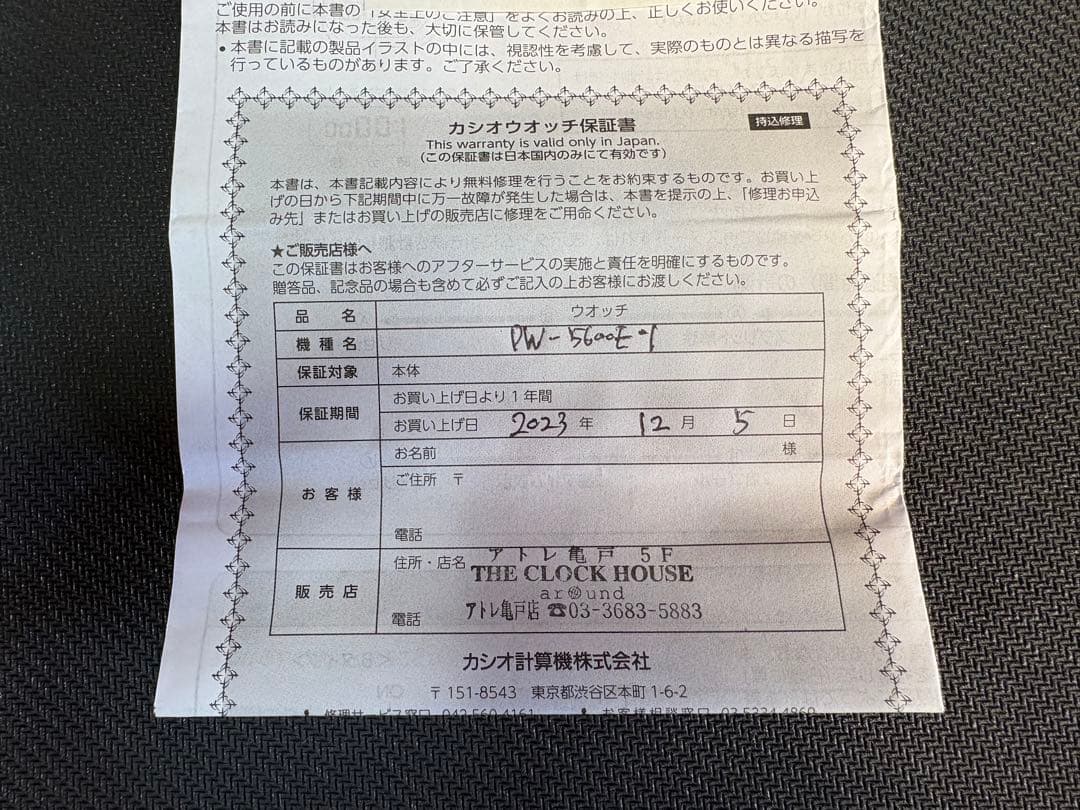 ご使用の前に本書の「安全上のご注意」をよくお読みの上、正しくお使いください。
本書はお読みになった後も、大切に保管してください。
• 本書に記載の製品イラストの中には、視認性を考慮して、実際のものとは異なる描写を
行っているものがあります。ご了承ください。
カシオウオッチ保証書
持込修理
This warranty is valid only in Japan.
(この保証書は日本国内のみにて有効です)
本書は、本書記載内容により無料修理を行うことをお約束するものです。お買い上
げの日から下記期間中に万一故障が発生した場合は、本書を提示の上、「修理お申込
み先」またはお買い上げの販売店に修理をご用命ください。
★ご販売店様へ
この保証書はお客様へのアフターサービスの実施と責任を明確にするものです。
贈答品、記念品の場合も含めて必ずご記入の上お客様にお渡しください。
品 名 ウオッチ
機種名 DW-5600E-1
保証対象 本体
保証期間 お買い上げ日より1年間
お買い上げ日 2023 年 12 月 5 日
お客様 お名前 様
ご住所 〒
電話
販売店 住所・店名 アトレ亀戸 5F
THE CLOCK HOUSE
around
電話 アトレ亀戸店 ☎03-3683-5883
カシオ計算機株式会社
〒151-8543 東京都渋谷区本町1-6-2
修理サービス窓口 042-560-4161 お客様相談窓口 03-5334-4869